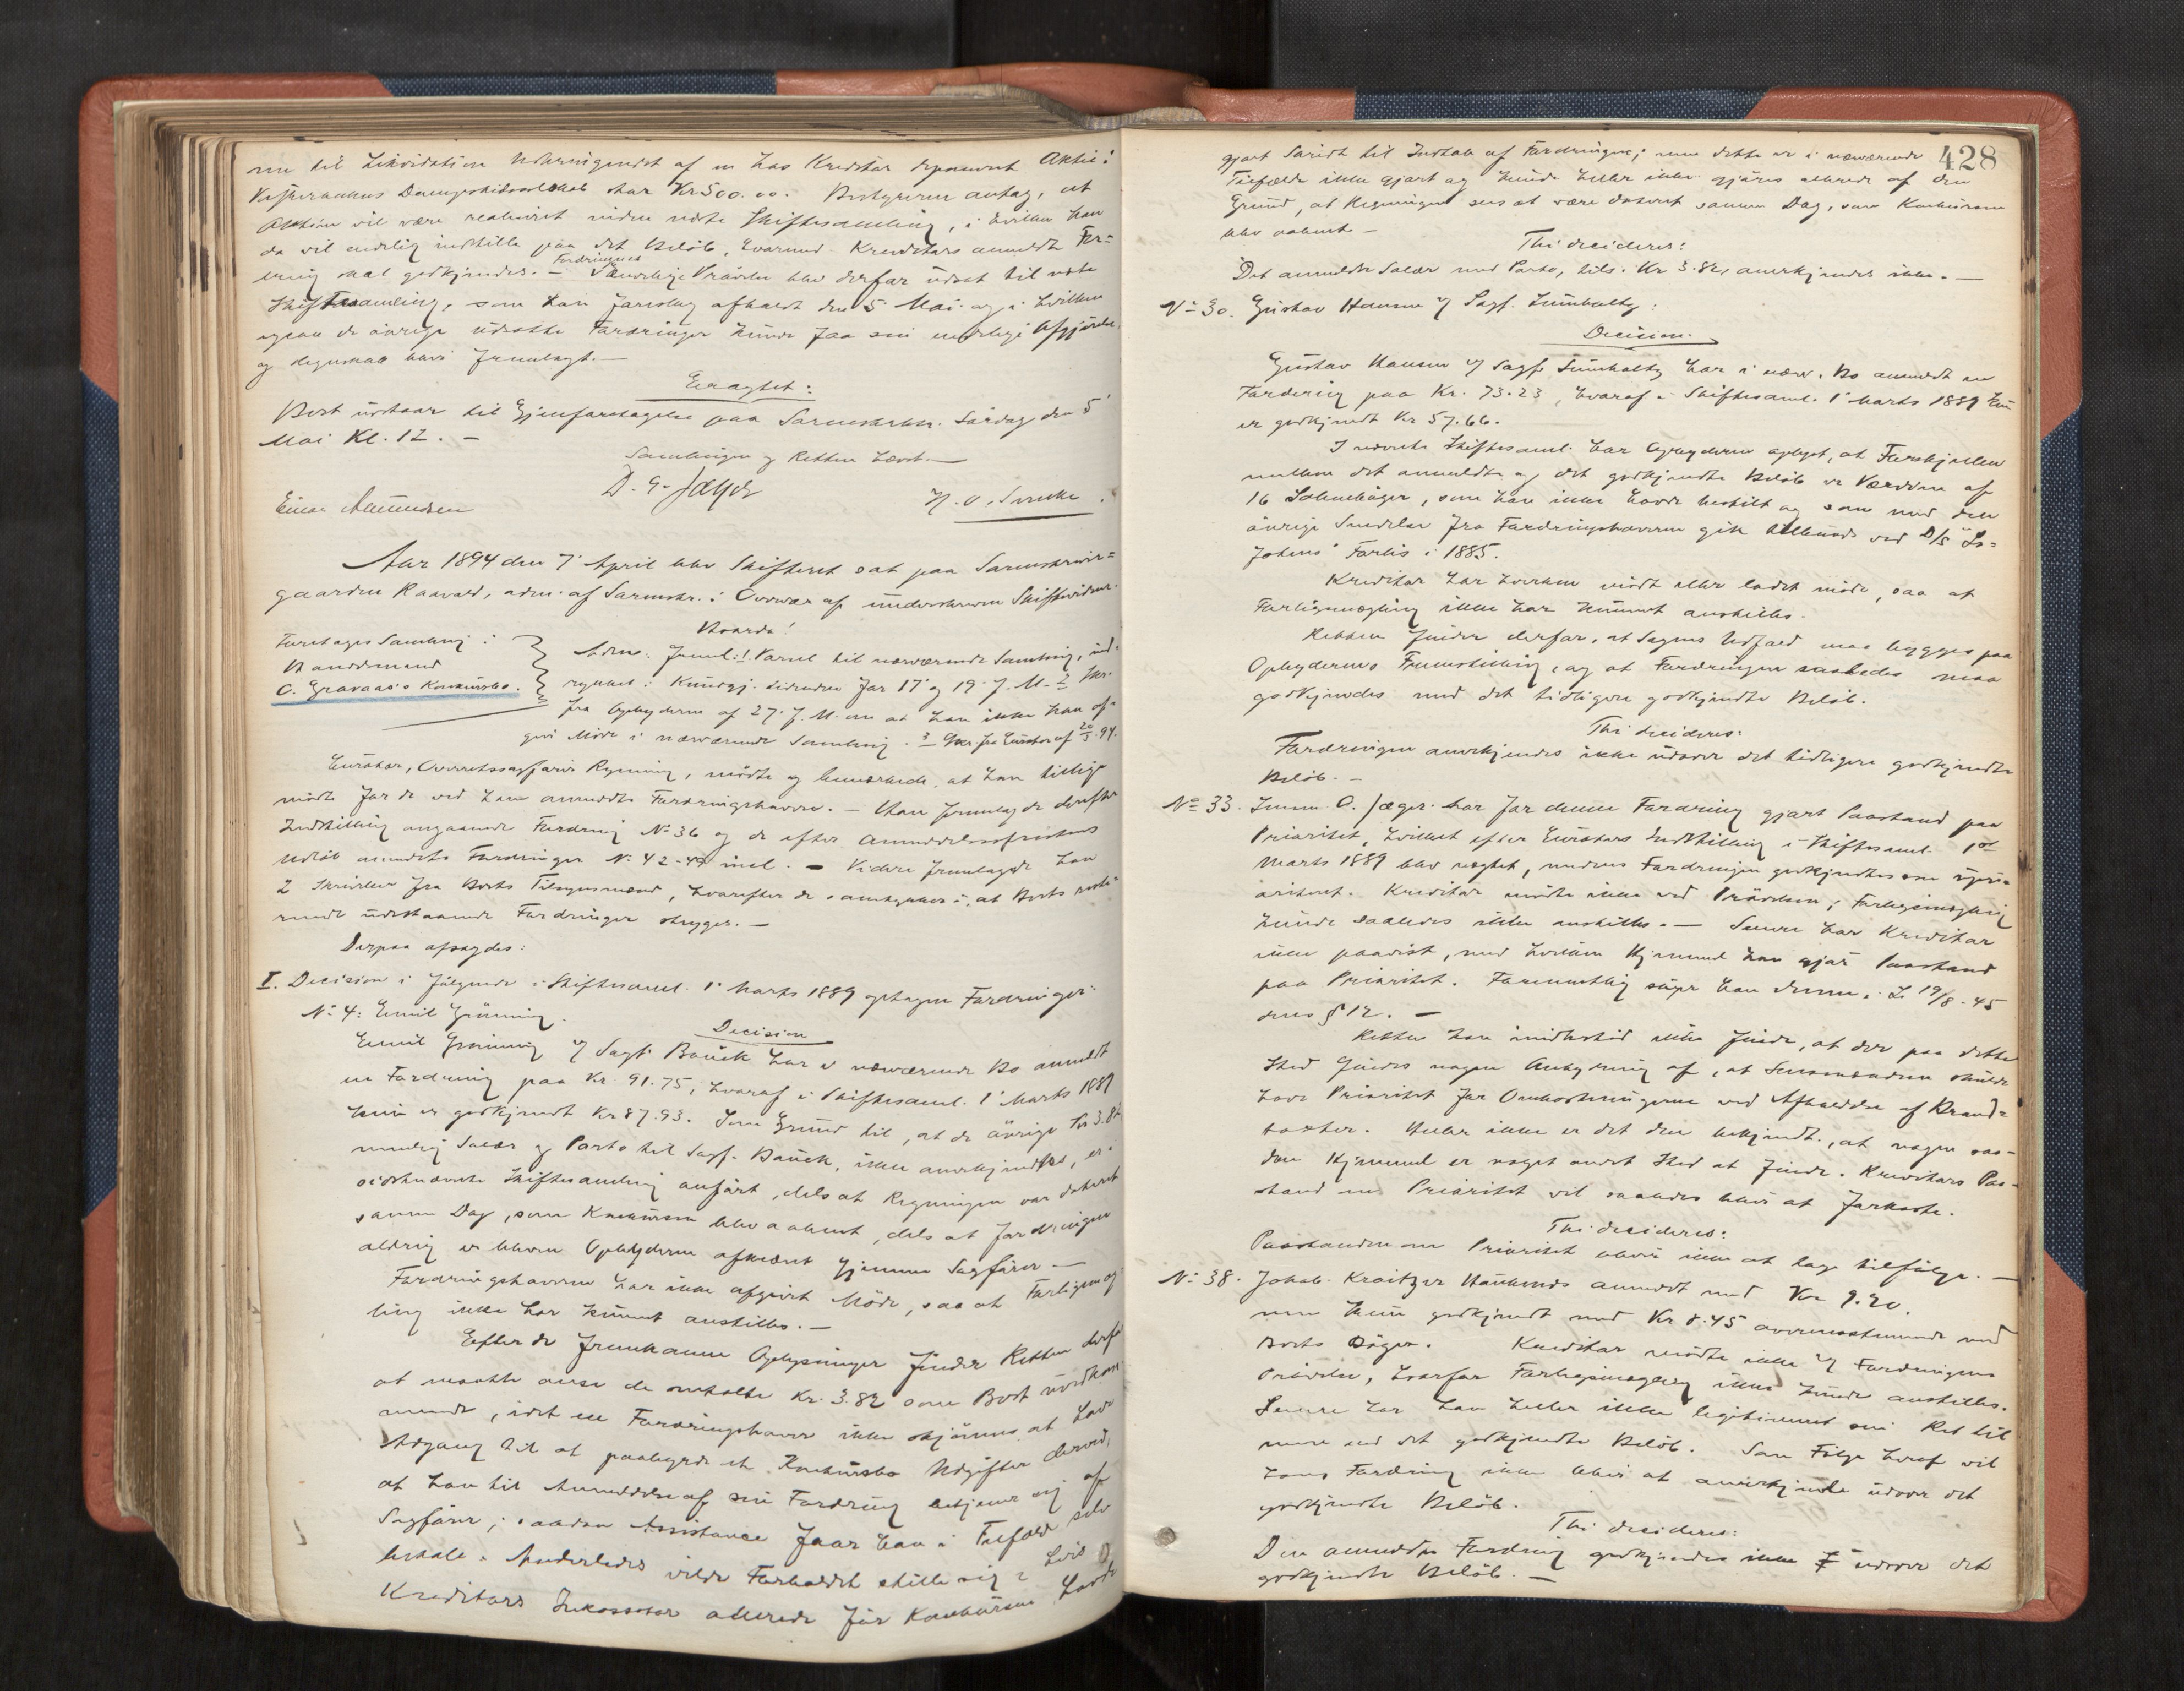 nu til Likvidation Udbringendet af en hos Kreditor deponeret Aktie i
Vesteraalens Dampskibsselskab stor Kr 500.00. Bestyreren antog, at
Aktien vil være realiseret inden næste Skiftesamling, i hvilken han
da vil endelig indstille paa det Beløb, hvormed Kreditors anmeldte For=
dring skal godkjendes. — Fordringens Prøvelse blev derfor udsat til næste
Skiftesamling, som kan foreslaaes afholdt den 5 Mai og i hvilken
ogsaa de øvrige udsatte Fordringer kunde faa sin endelige Afgjørelse
og Regnskab blive fremlagt. —
Eragtet:
Boet udstaar til Gjenforetagelse paa Sorenskrkr. Lørdag den 5'
Mai Kl. 12. —
Samlingen og Retten hævet. —
Einar Amundsen
D. G. Jæger
Aar 1894 den 7' April blev Skifteret sat paa Sorenskriver=
gaarden Raavald, adm. af Sorenskr. i Overvær af underskrevne Skiftevidner.
Hvorda!
Foretages Samling i
Handelsmand
C. Gravaas's Konkursbo.
Adm. freml: 1. Varsel til nærværende Samling, ind=
rykket i Kundgj. tidenden for 17' og 19' f. M. 2 Skr.
fra Opbyderen af 27. f. M. om at han ikke kan af=
give Møde i nærværende Samling. 3 Skr. fra Curator af 20/3. 94.
Curator, Overretssagfører Rynning, mødte og bemærkede, at han tillige
mødte for de ved ham anmeldte Fordringshavere. — Han fremlagde derefter
Indstilling angaaende Fordring No 36 og de efter Anmeldelsesfristens
Udløb anmeldte Fordringer No 42-49 incl. — Videre fremlagde han
2 Skrivelser fra Boets Tilsynsmænd, hvorefter de samtykker i, at Boets reste=
rende udestaaende Fordringer stryges. —
Derpaa afsagdes:
I. Decision i følgende i Skiftesaml. 1' Marts 1889 optagne Fordringer:
No 4: Emil Grönning.
Decision
Emil Grönning v/ Sagf. Bauck har i nærværende Bo anmeldt
en Fordring paa Kr. 91.75, hvoraf i Skiftesaml. 1' Marts 1889
kun er godkjendt Kr 87.93. Som Grund til, at de øvrige Kr 3.82
nemlig Salær og Porto til Sagf. Bauck, ikke anerkjendtes, er i
sidstnævnte Skiftesamling anført, dels at Regningen var dateret
samme Dag, som Konkursen blev aabnet, dels at Fordringen
aldrig er bleven Opbyderen afkrævet gjennem Sagfører —
Fordringshaveren har ikke afgivet Møde, saa at Forligsmæg=
ling ikke har kunnet anstilles. —
Efter de fremkomne Oplysninger finder Retten derfor
at maatte anse de omtalte Kr. 3.82 som Boet uvedkom
mende, idet en Fordringshaver ikke skjønnes at have
Adgang til at paabyrde et Konkursbo Udgifter derved,
at han til Anmeldelse af sin Fordring betjener sig af
Sagfører; saadan Assistance faar han i Tilfælde selv
betale. Anderledes vilde Forholdet stille sig i hvis
Kreditors Inkassator allerede før Konkursen havde
428
gjort Skridt til Indtale af Fordringen; men dette er i nærværende
Tilfælde ikke gjort og kunde heller ikke gjøres allerede af den
Grund, at Regningen sees at være dateret samme Dag, som Konkursen
blev aabnet —
Thi decideres:
Det anmeldte Salær med Porto, tils. Kr 3.82, anerkjendes ikke. —
No 30. Gustav Hansen v/ Sagf. Lumholtz:
Decision.
Gustav Hansen v/ Sagf. Lumholtz har i nærv. Bo anmeldt en
Fordring paa Kr. 73.23, hvoraf i Skiftesaml. 1' Marts 1889 kun
er godkjendt Kr 57.66.
I nævnte Skiftesaml. har Opbyderen oplyst, at Forskjellen
mellem det anmeldte og det godkjendte Beløb er Værdien af
16 Salmebøger, som han ikke havde bestilt og som med den
øvrige Sendelse fra Fordringshaveren gik tilbunds ved D/S "St.
Johens" Forlis i 1885.
Kreditor har hverken mødt eller ladet møde, saa at
Forligsmægling ikke har kunnet anstilles.
Retten finder derfor, at Sagens Udfald maa bygges paa
Opbyderens Fremstilling, og at Fordringen saaledes maa
godkjendes med det tidligere godkjendte Beløb.
Thi decideres:
Fordringen anerkjendes ikke udover det tidligere godkjendte
Beløb. —
No 33. Lensm. O. Jæger har for denne Fordring gjort Paastand paa
Prioritet, hvilket efter Curators Indstilling i Skiftesaml. 1ste
Marts 1889 blev nægtet, medens Fordringen godkjendtes som upri=
oriteret. Kreditor mødte ikke ved Prøvelsen; Forligsmægling
kunde saaledes ikke anstilles. — Senere har Kreditor
ikke paavist, med hvilken Hjemmel han gjør Paastand
paa Prioritet. Formentlig søger han denne i L. 19/8. 45
dens § 12. —
Retten kan imidlertid ikke finde, at der paa dette
Sted findes nogen Antydning af, at Lensmanden skulde
have Prioritet for Omkostningerne ved Afholdelse af Brand=
takster. Heller ikke er det den bekjendt, at nogen saa=
dan Hjemmel er noget andet Sted at finde. Kreditors Paa=
stand om Prioritet vil saaledes blive at forkaste.
Thi decideres:
Paastanden om Prioritet bliver ikke at tage tilfølge. —
No 38. Jakob Kroitzer Haukenes anmeldt med Kr 9.20.
men kun godkjendt med Kr 8.45 overensstemmende med
Boets Bøger. Kreditor mødte ikke v/ Fordringens
Prøvelse, hvorfor Forligsmægling ikke kunde anstilles.
Senere har han heller ikke legitimeret sin Ret til
mere end det godkjendte Beløb. Som Følge heraf vil
hans Fordring ikke blive at anerkjende udover det
godkjendte Beløb.
Thi decideres:
Den anmeldte Fordring godkjendes ikke udover det
godkjendte Beløb. —